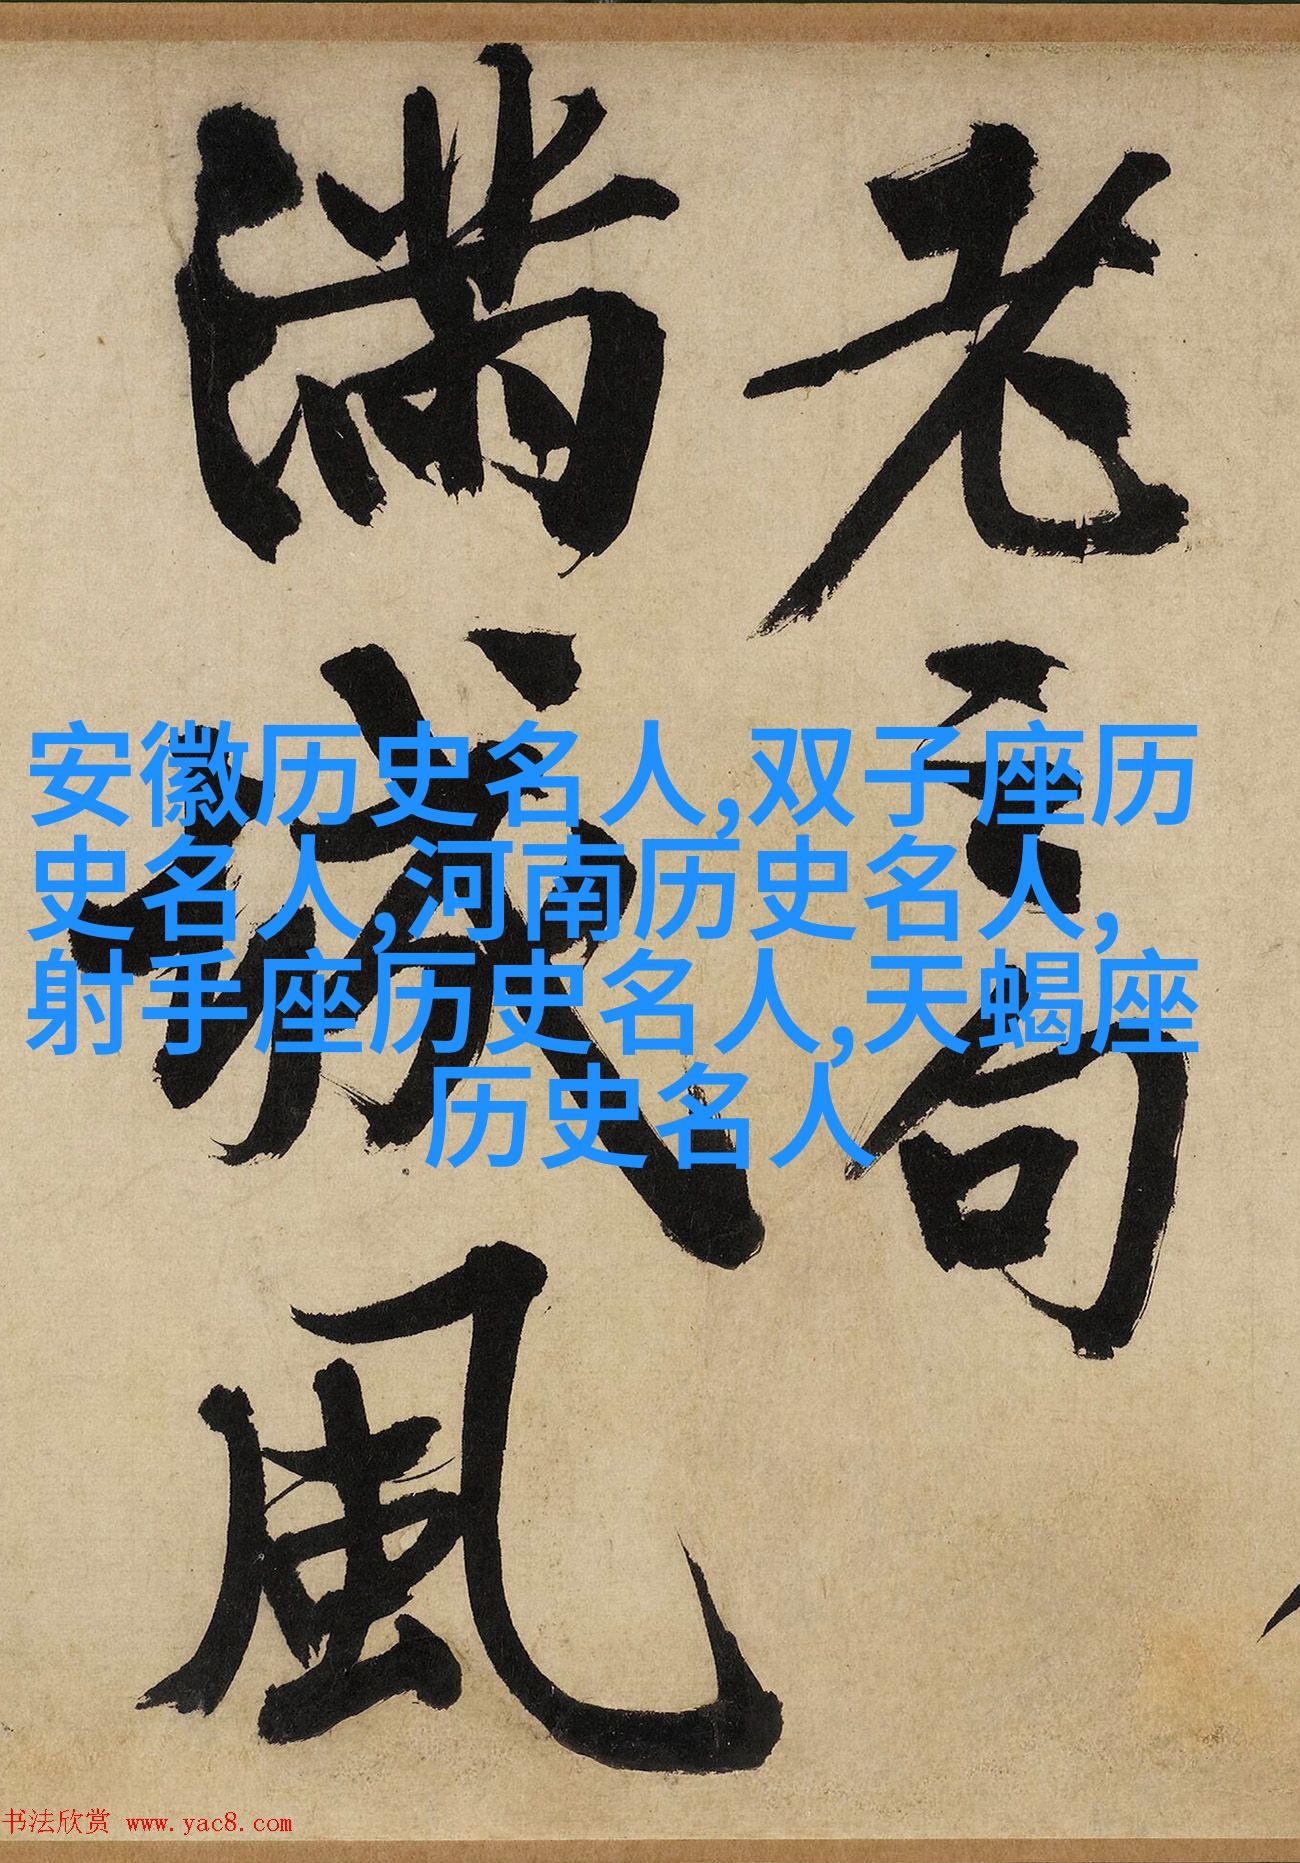 老句
滿城風
安徽历史名人,双子座历
史名人,河南历史名人,
射手座历史名人,天蝎座
历史名人
书法欣赏 www.yac8.com